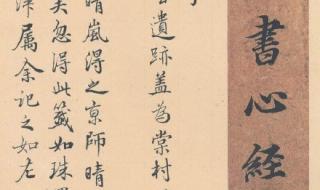 書心經
遺跡蓋為棠村
晴嵐得之京師晴
矣忽得此箋如珠
屬余記之如左